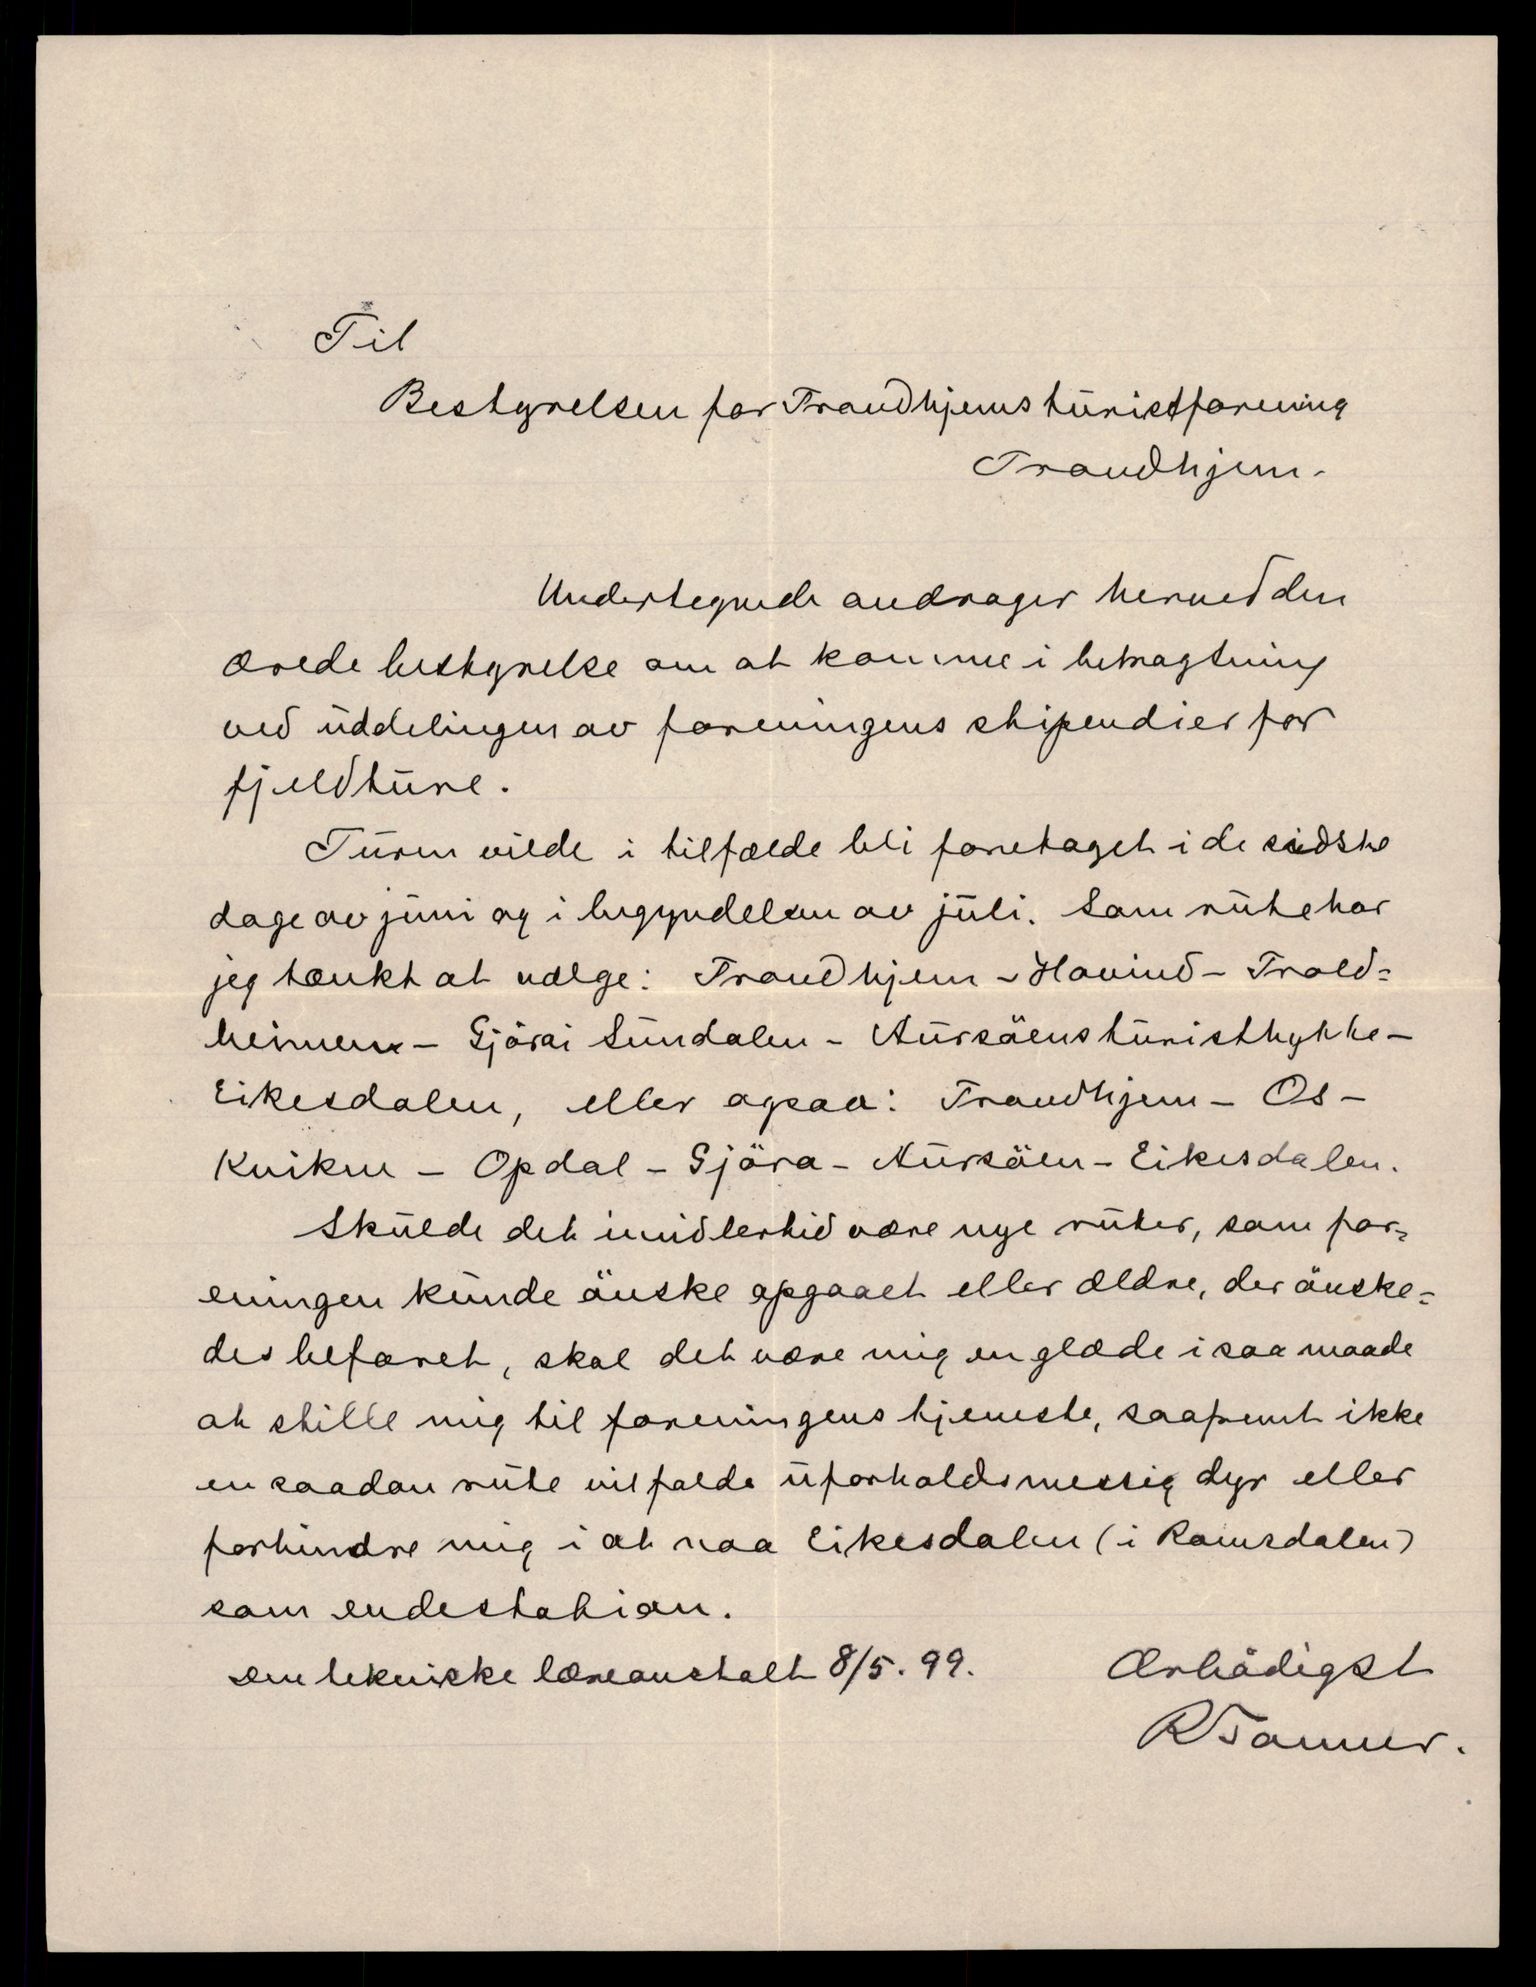 Til
Bestyrelsen for Trondhjems turistforening
Trondhjem.
Undertegnede andrager herved den
ærede bestyrelse om at komme i betragtning
ved uddelingen av foreningens stipendier for
fjeldture.
Turen vilde i tilfælde bli foretaget i de sidste
dage av juni og i begyndelsen av juli. Som rute har
jeg tænkt at vælge: Trondhjem - Hovind - Trold=
heimen - Gjöra i Sundalen - Aursöens turisthytte -
Eikesdalen, eller ogsaa: Trondhjem - Os -
Kvikne - Opdal - Gjöra - Aursöen - Eikesdalen.
Skulde det imidlertid være nye ruter, som for=
eningen kunde önske opgaaet eller ældre, der önske=
des befaret, skal det være mig en glæde i saa maade
at stille mig til foreningens tjeneste, saafremt ikke
en saadan rute vil falde uforholdsmessig dyr eller
forhindre mig i at naa Eikesdalen (i Romsdalen)
som endestation.
tekniske læreanstalt 8/5. 99.
Ærbödigst
R Tønner.